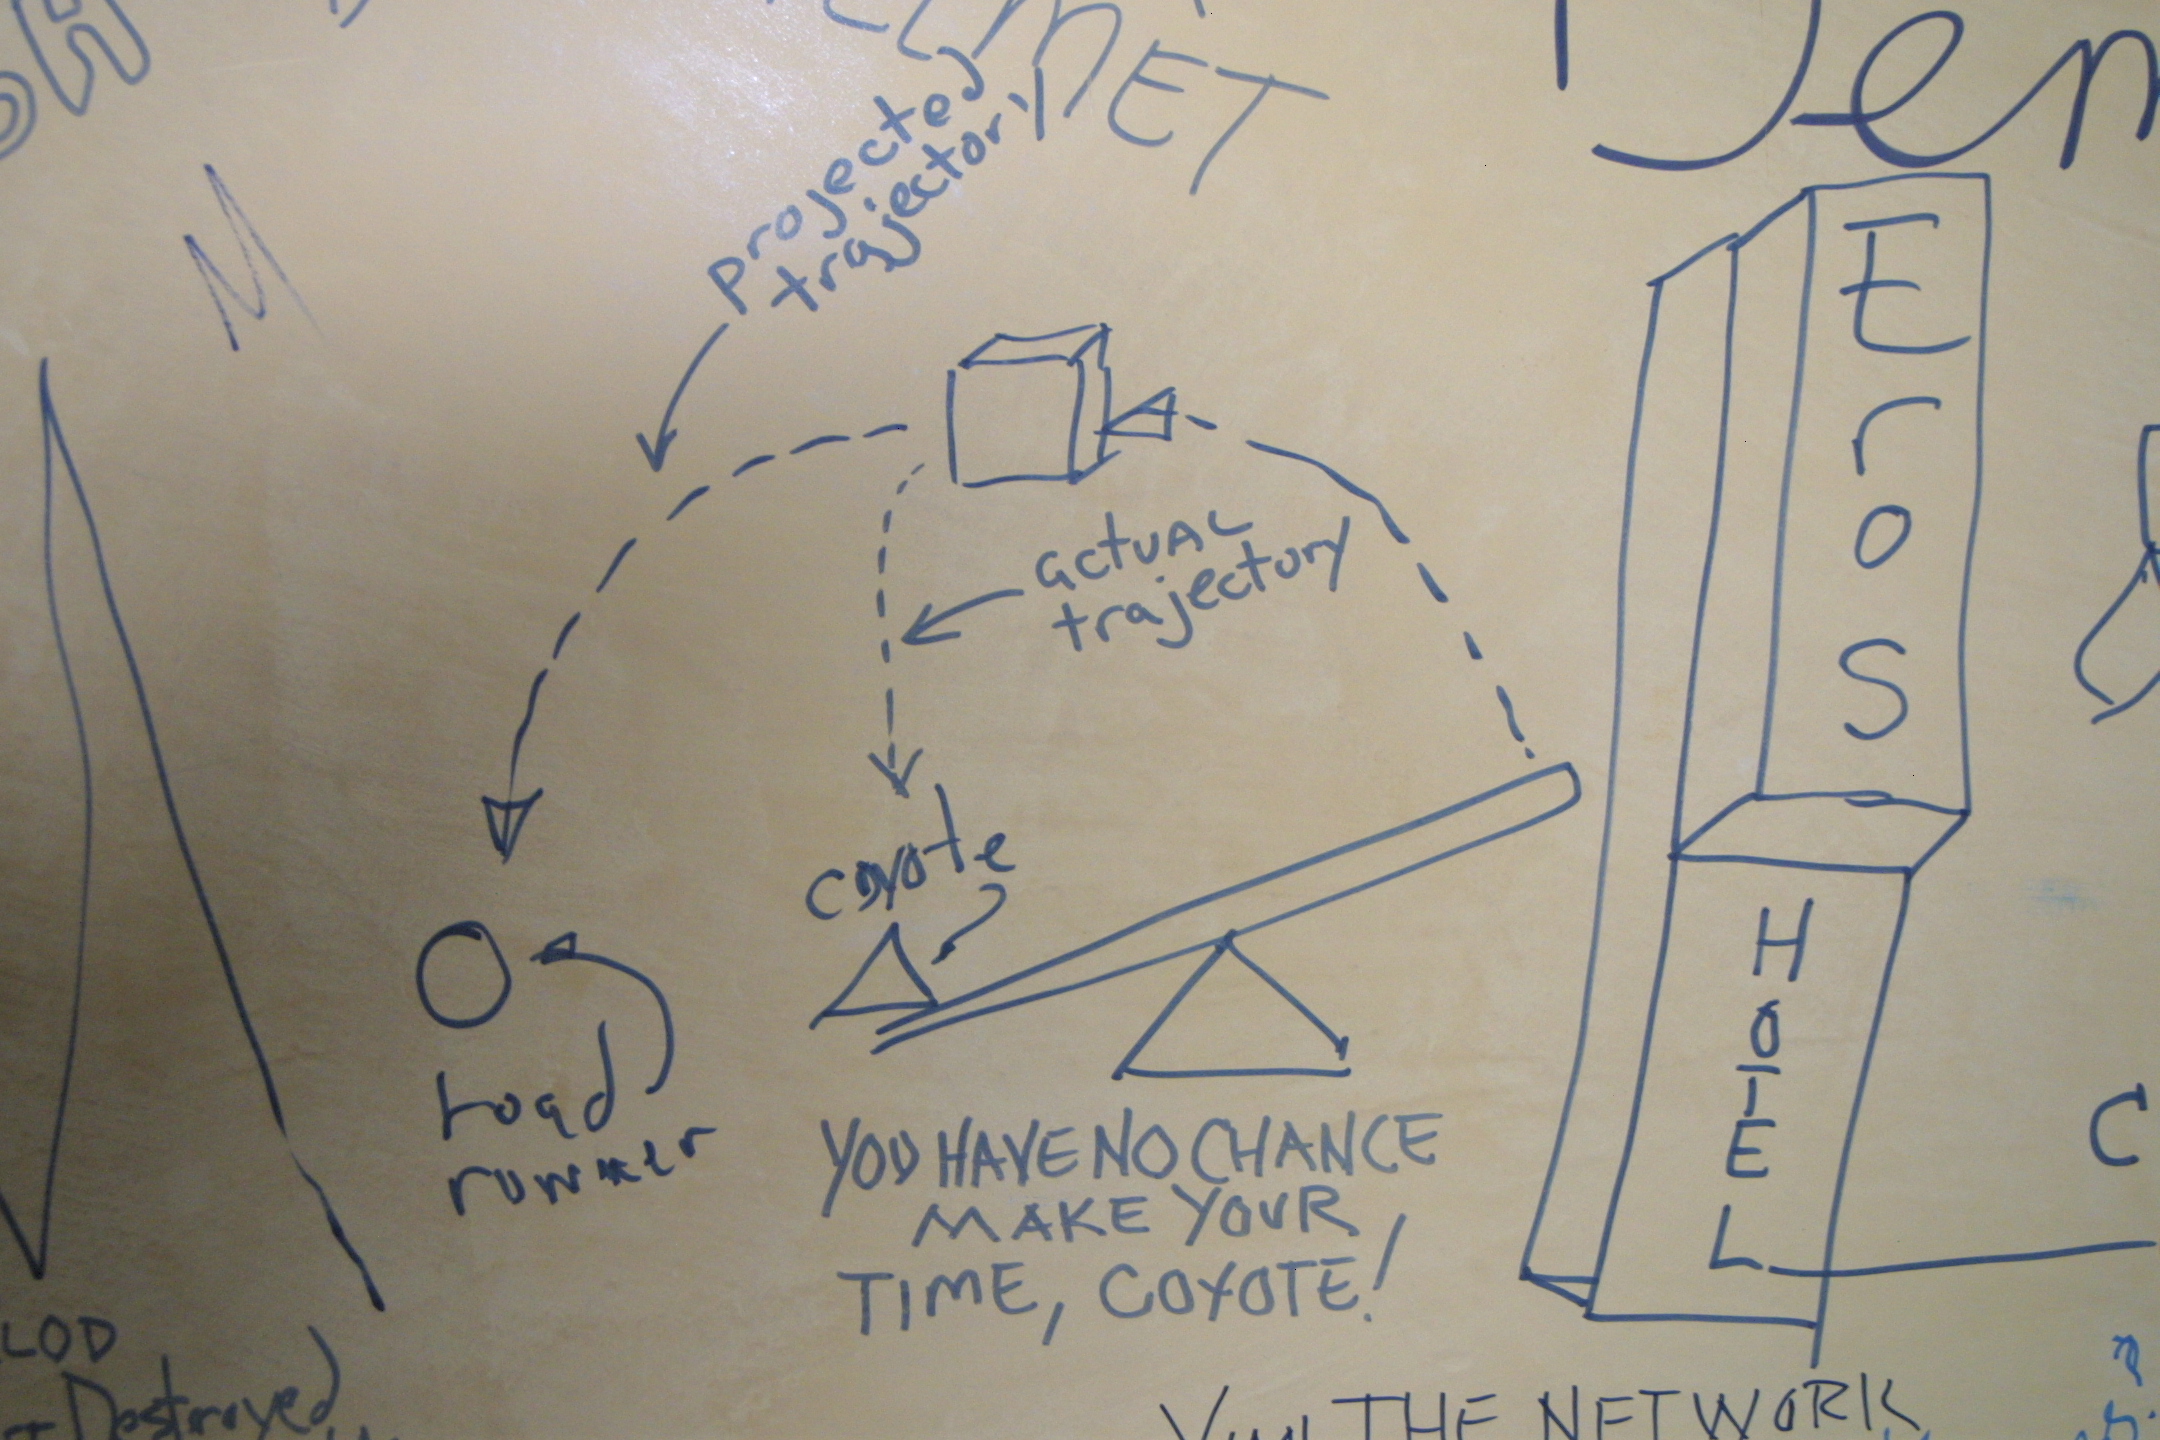 projected
trajectory
actual
trajectory
coyote
road
runner
YOU HAVE NO CHANCE
MAKE YOUR
TIME, COYOTE!
Eros
HOTEL
M
C
LOD
Destroyed
THE NETWORK